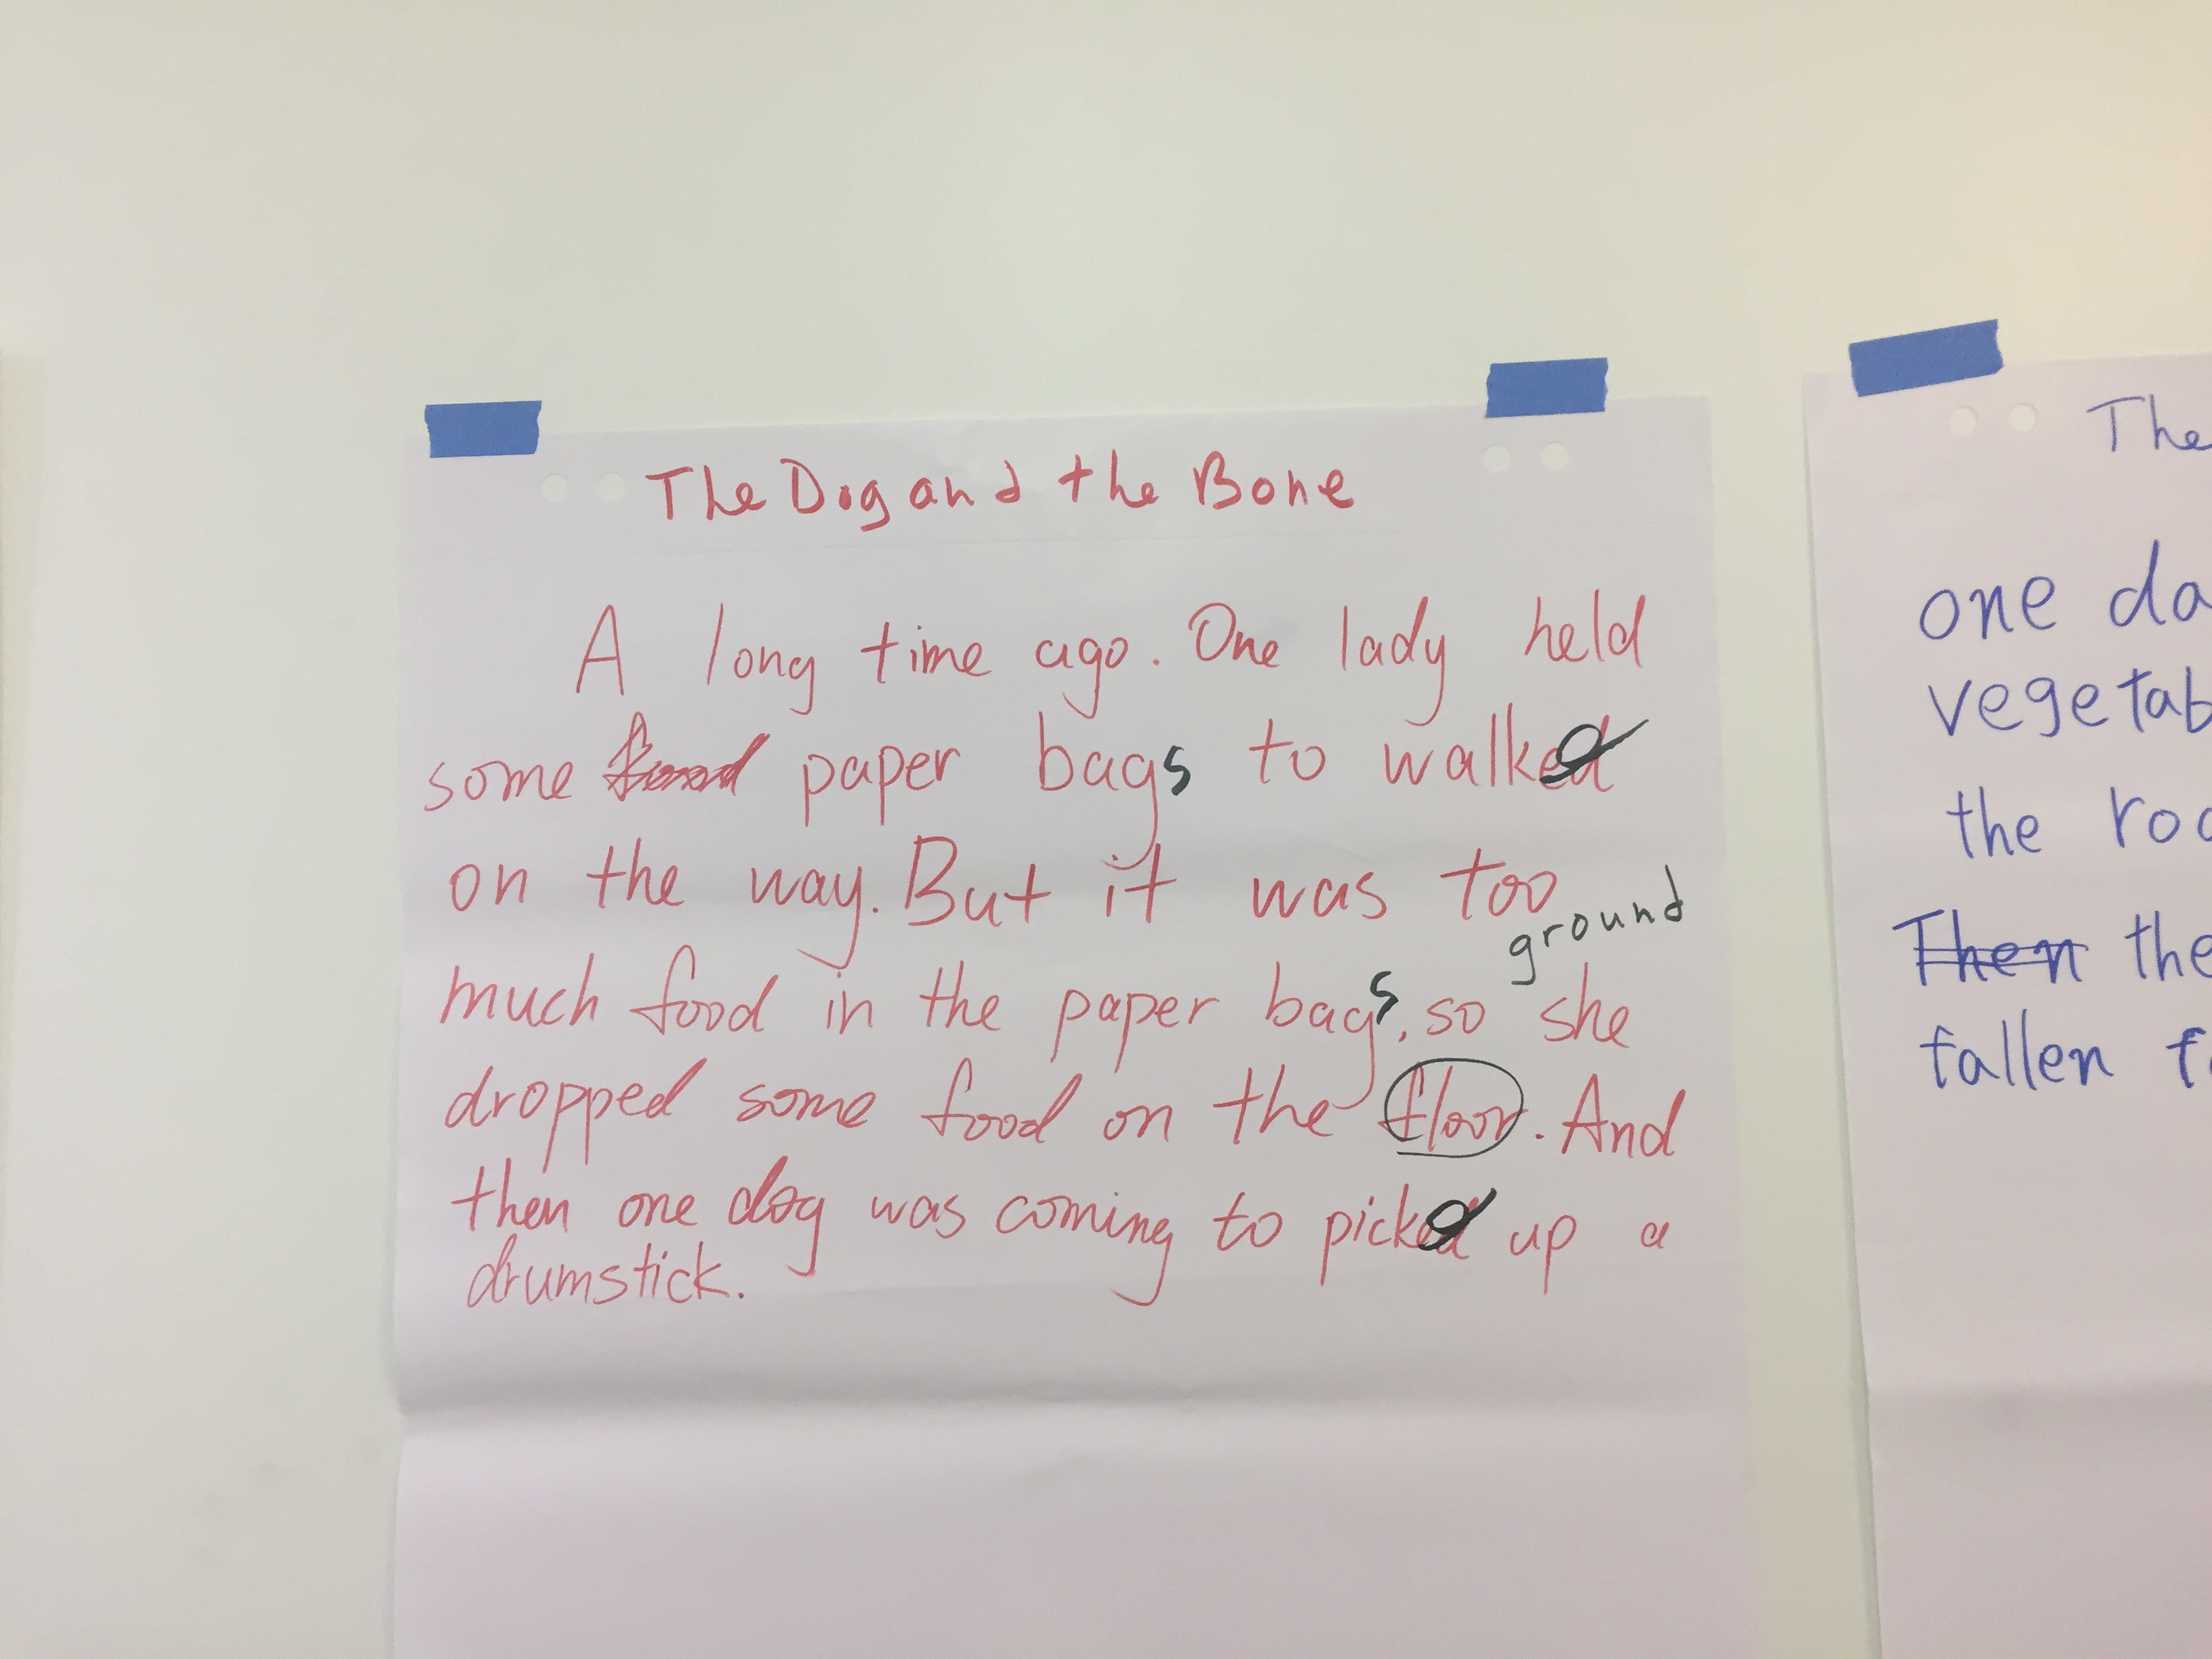 The Dog and the Bone
A long time ago. One lady held
some food paper bags to walked
on the way. But it was too
ground
much food in the paper bags, so she
dropped some food on the floor. And
then one dog was coming to picked up a
drumstick.
The
one da
vegetab
the roa
Then the
fallen f